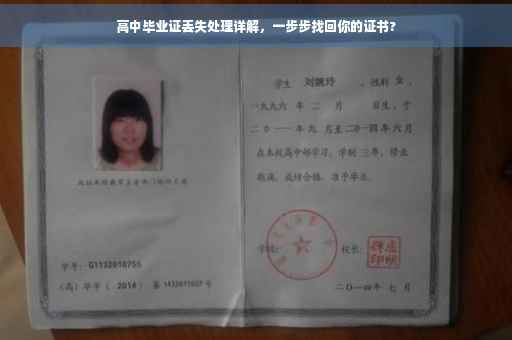 高中毕业证丢失处理详解，一步步找回你的证书?
学生 刘婉玲 ，性别 女 ，
一九九六 年 二 月 日生，于
二〇一一年 九 月至二〇一四年 六 月
在本校高中部学习，学制 三年，修业
期满，成绩合格，准予毕业。
学校: 校长:
学号: G1132010755
(高) 毕字 ( 2014 ) 第 1432011027 号
二〇一四年 七 月